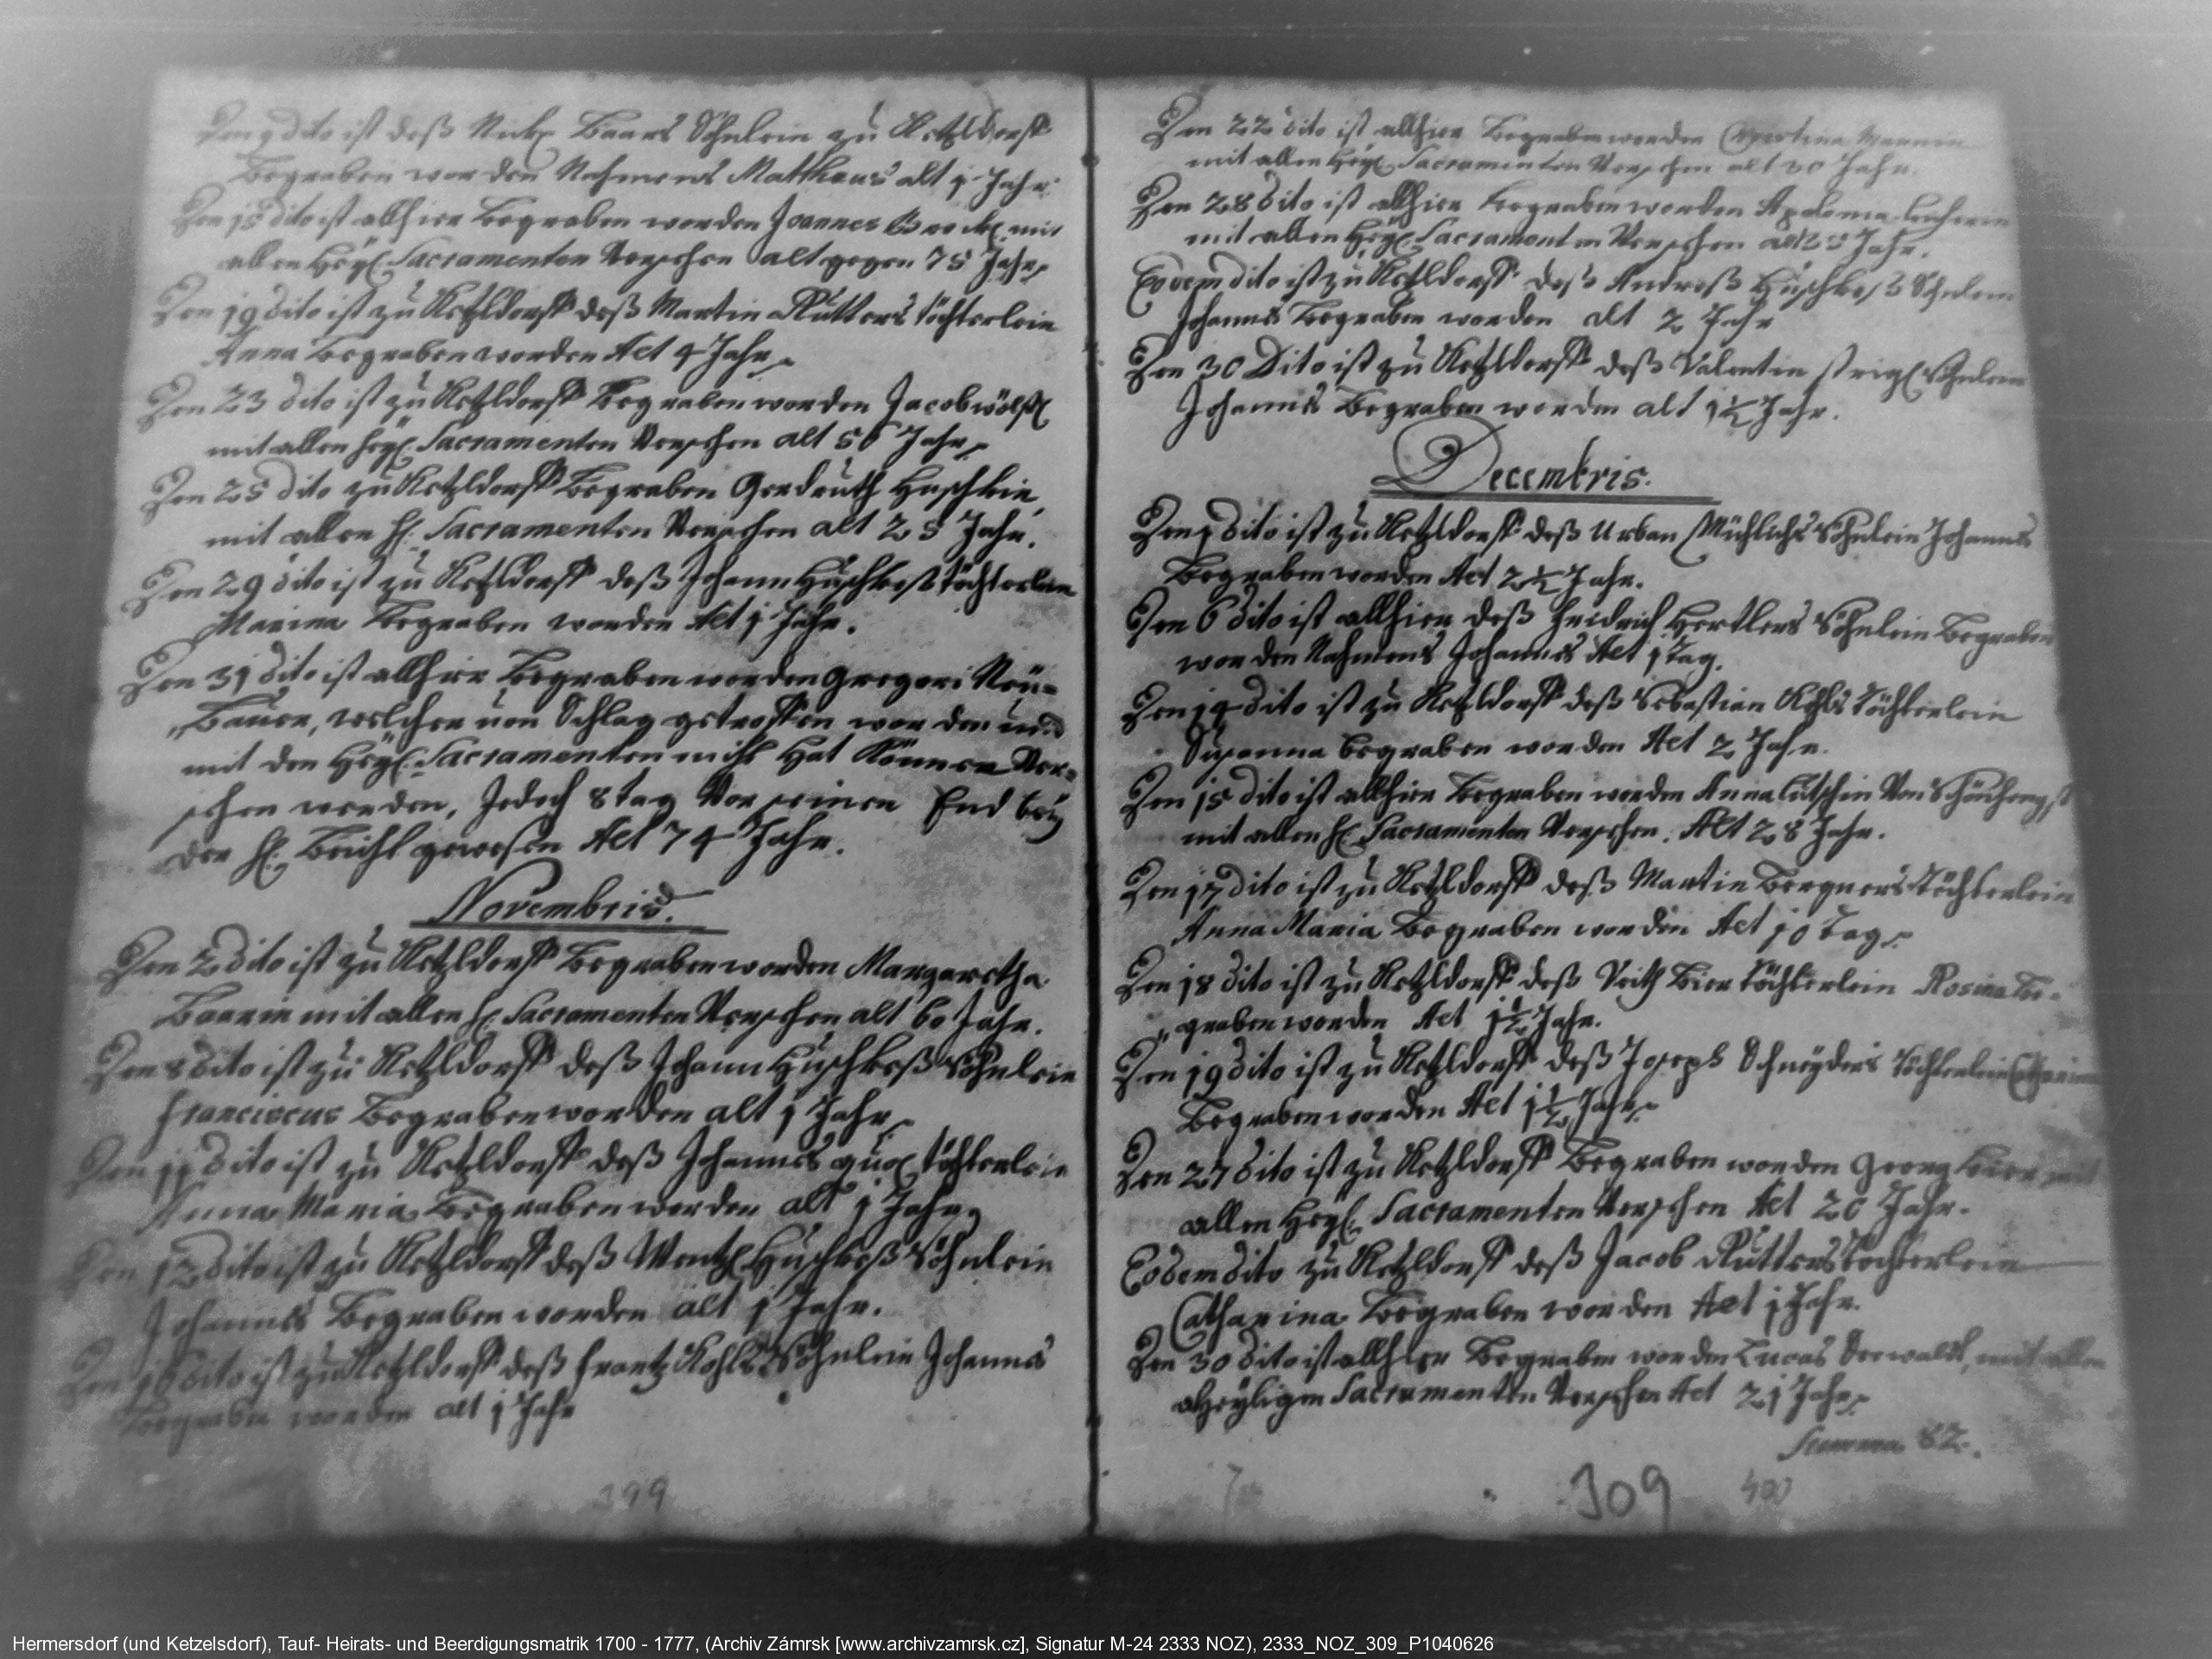 Den 9 dito ist deß Nickl Baars Söhnlein zu Ketzldorff
Begraben worden Nahmens Matthaus alt 1 Jahr
Den 15 dito ist allhier Begraben worden Joannes mit
allen Heyl. Sacramenten Versehen alt gegen 75 Jahr
Den 19 dito ist zu Ketzldorff deß Martin Rutters töchterlein
Anna Begraben worden Aet 4 Jahr
Den 23 dito ist zu Ketzldorff Begraben worden Jacob wölffl
mit allen heyl. Sacramenten Versehen alt 56 Jahr
Den 25 dito zu Ketzldorff Begraben Gerdruth Huschkin
mit allen H. Sacramenten Versehen alt 25 Jahr.
Den 29 dito ist zu Ketzldorff deß Johann Huschkeß töchterlein
Marina Begraben worden Aet 1 Jahr.
Den 31 dito ist allhier Begraben worden Gregori Neü-
Bauer, welcher von Schlag getroffen worden und
mit den Heyl. Sacramenten nicht hat können Ver-
sehen werden, Jedoch 8 tag Vor seinen End beÿ
der H. Beicht gewesen Aet 74 Jahr.
Novembris.
Den 2 dito ist zu Ketzldorff Begraben worden Margaretha
Baarin mit allen H. Sacramenten Versehen alt 60 Jahr.
Den 8 dito ist zu Ketzldorff deß Johann Huschkeß Söhnlein
Franciscus Begraben worden alt 1 Jahr
Den 11 dito ist zu Ketzldorff deß Johannes töchterlein
Anna Maria Begraben worden alt 1 Jahr
Den 12 dito ist zu Ketzldorff deß Wentzl Huschkeß Söhnlein
Johannes Begraben worden alt 1 Jahr.
Den 16 dito ist zu Ketzldorff deß Frantz Kohls Söhnlein Johannes
Begraben worden alt 1 Jahr
399
Den 22 dito ist allhier Begraben worden
mit allen Heyl. Sacramenten Versehen alt 30 Jahr.
Den 28 dito ist allhier Begraben worden Apolonia
mit allen Heyl. Sacramenten Versehen alt Jahr.
Eodem dito ist zu Ketzldorff deß Andreß Huschkeß Söhnlein
Johannes Begraben worden alt 2 Jahr
Den 30 Dito ist zu Ketzldorff deß Valentin strigl Söhnlein
Johannes Begraben worden alt 1½ Jahr.
Decembris.
Den 1 dito ist zu Ketzldorff deß Urban Müchlichs Söhnlein Johannes
Begraben worden Aet 2½ Jahr.
Den 6 dito ist allhier deß Fridrich Hertlers Söhnlein Begraben
worden Nahmens Johannes Aet 1 tag.
Den 14 dito ist zu Ketzldorff deß Sebastian Kohls töchterlein
Susanna begraben worden Aet 2 Jahr.
Den 15 dito ist allhier Begraben worden Anna Von
mit allen H. Sacramenten Versehen. Alt 28 Jahr.
Den 17 dito ist zu Ketzldorff deß Martin Bergners töchterlein
Anna Maria Begraben worden Aet 10 Tag
Den 18 dito ist zu Ketzldorff deß Veith Bier töchterlein Rosina Be-
graben worden Aet 1½ Jahr.
Den 19 dito ist zu Ketzldorff deß Joseph Schneÿders töchterlein
Begraben worden Aet 1½ Jahr
Den 27 dito ist zu Ketzldorff Begraben worden Georg mit
allen Heyl. Sacramenten Versehen Aet 20 Jahr.
Eodem dito zu Ketzldorff deß Jacob Rutters töchterlein
Catharina Begraben worden Aet 1 Jahr.
Den 30 dito ist allhier Begraben worden Lucas mit allen
Heyligen Sacramenten Versehen Aet 21 Jahr
Summa 82.
309
400
Hermersdorf (und Ketzelsdorf), Tauf- Heirats- und Beerdigungsmatrik 1700 - 1777, (Archiv Zámrsk [www.archivzamrsk.cz], Signatur M-24 2333 NOZ), 2333_NOZ_309_P1040626